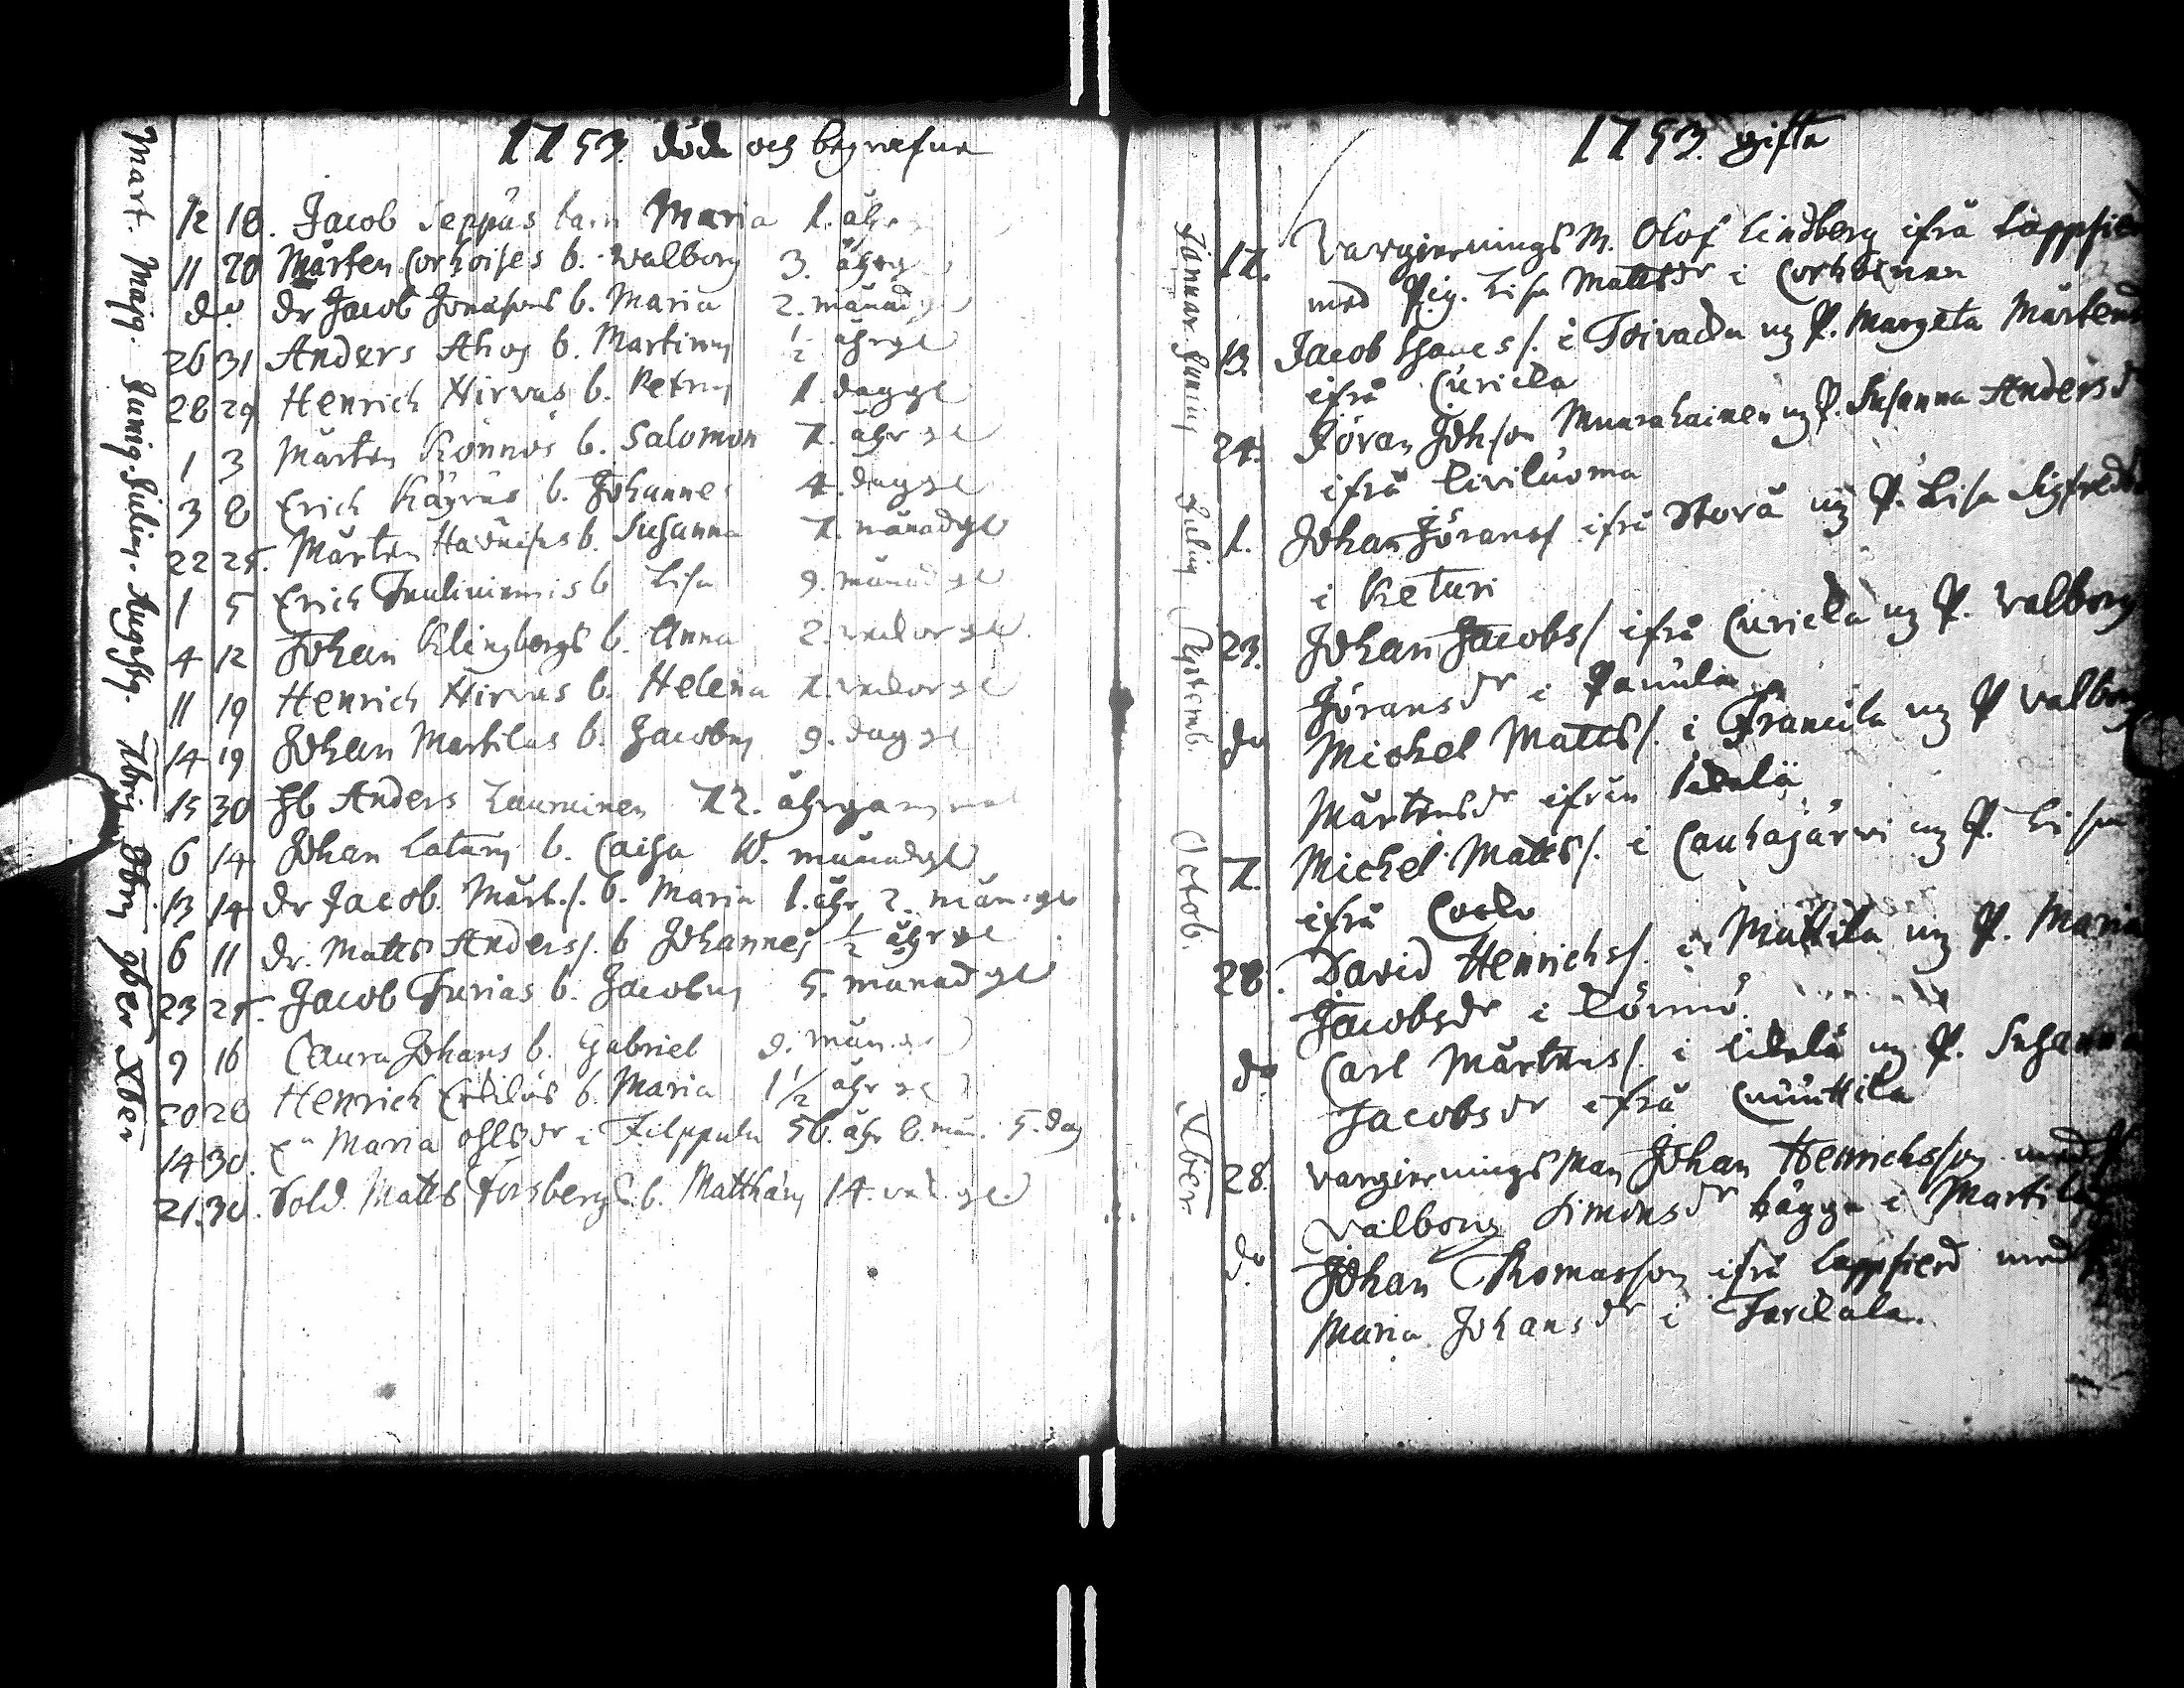 1753. döde och begrafne
Mart. Majg. Junig. Julig. Augustg. 7brig 8brig 9ber Xber
12 18. Jacob Seppäs barn Maria 1. åhr
11 20 Mårten Corhoises b. Walborg 3. åhrg
do dr Jacob Jonasons b. Maria 2. månad
26 31 Anders Ahos b. Martinus ½ åhrgl
28 29 Henrich Hirvas b. Petrus 1. daggl
1 3 Mårten Könnös b. Salomon 7. åhr gl
3 8 Erich b. Johannes 4. daggl
22 25. Mårten b. Susanna 7. månadgl
1 5 Erich b Lisa 9. månad gl
4 12 Johan Klingbergs b. Anna 2. weckor gl
11 19 Henrich Hirvas b. Helena 7. weckor gl
14 19 Johan Martilas b. Jacobus 9. dag gl
15 30 Anders Lauminen 72. åhrgammal
6 14 Johan b. Caisa 10. månadgl
13 14 dr Jacob. Mårt.s. b. Maria 1. åhr 2. mån. gl
6 11 dr. Matts Anderss. b Johannes ½ åhr gl
23 25. Jacob b. Jacobus 5. månad gl
9 16 Caura Johans b. Gabriel 9. mån. gl
20. 28 Henrich b. Maria 1 ½ åhr gl
14 30. Maria Ohlsdr i Filppula 56. åhr 8. mån. 5. dag
21. 30. Sold. Matts Forsbergs b. Matthäus 14. gl
1753. gifta
Januar. Junius Julius Septemb. Octob. Xber
12. Vargierningsm. Olof Lindberg ifrå Lappfier
med Pig. Lisa Mattsdr i Corhoinen
13. Jacob Isaacss. i Toivacka ug P. Margeta Mårtens
ifrå Curicka
24. Jöran Johson Muurahainen ug P. Susanna Andersd
ifrå Liviluoma
1. Johan Jöranss ifrå Storå ug P. Lisa Sigfreds
i Keturi
23. Johan Jacobss ifrå Curicka ug P. Walborg
Jöransdr i Panula
do Michel Mattss. i Francila ug P Walborg
Mårtensdr ifrån
7. Michel Mattss. i Cauhajärwi ug P. Lisa
ifrå
28. David Henrichss. i Mattila ug P. Maria
Jacobsdr i
do Carl Mårtenss. i ug P. Susanna
Jacobsdr ifrå Cuuttila
28. Vargierningsman Johan Henrichsson med
Valborg Simonsdr bägge i Martila
do Johan Thomasson ifrå Lappfierd med
Maria Johansdr i